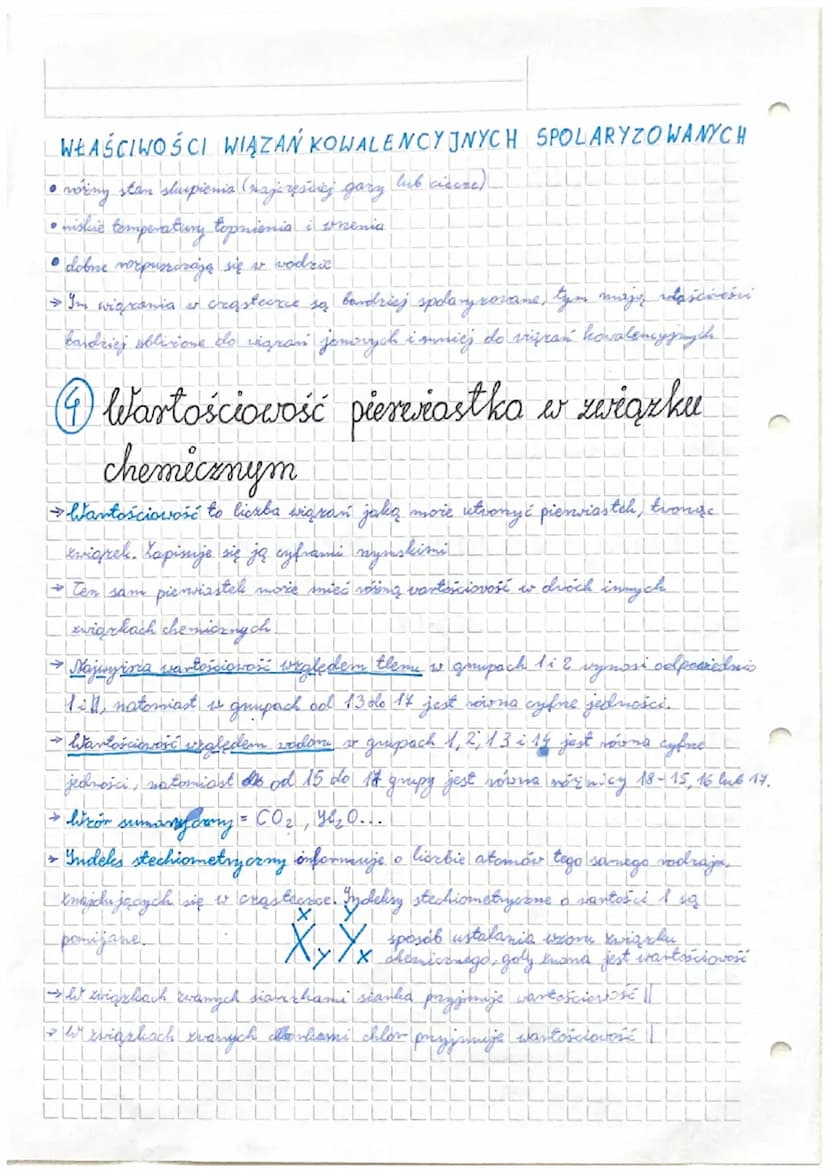 WŁAŚCIWOŚCI WIĄZAŃ KOWALENCYJNYCH SPOLARYZOWANYCH
• różny stan skupienia (najczęściej gazy lub ciecze)
• niskie temperatury topnienia i wrzenia
• dobrze rozpuszczają się w wodzie
→ Im wiązania w cząsteczce są bardziej spolaryzowane, tym mają właściwości
bardziej zbliżone do wiązań jonowych i mniej do wiązań kowalencyjnych
④ Wartościowość pierwiastka w związku
chemicznym
→ Wartościowość to liczba wiązań jaką może utworzyć pierwiastek, tworząc
związek. Zapisuje się ją cyframi rzymskimi
→ Ten sam pierwiastek może mieć różną wartościowość w dwóch innych
związkach chemicznych.
→ Najwyższa wartościowość względem tlenu w grupach 1 i 2 wynosi odpowiednio
I i II, natomiast w grupach od 13 do 17 jest równa cyfrze jedności.
→ Wartościowość względem wodoru w grupach 1, 2, 13 i 14 jest równa cyfrze
jedności, natomiast od 15 do 17 grupy jest równa różnicy 18-15, 16 lub 17.
→ Wzór sumaryczny = CO₂, H₂O...
→ Indeks stechiometryczny informuje o liczbie atomów tego samego rodzaju,
znajdujących się w cząsteczce. Indeksy stechiometryczne o wartości 1 są
pomijane.
x y
X_y Y_x sposób ustalania wzoru związku
chemicznego, gdy znana jest wartościowość
→ W związkach zwanych siarczkami siarka przyjmuje wartościowość II
→ W związkach zwanych chlorkami chlor przyjmuje wartościowość I